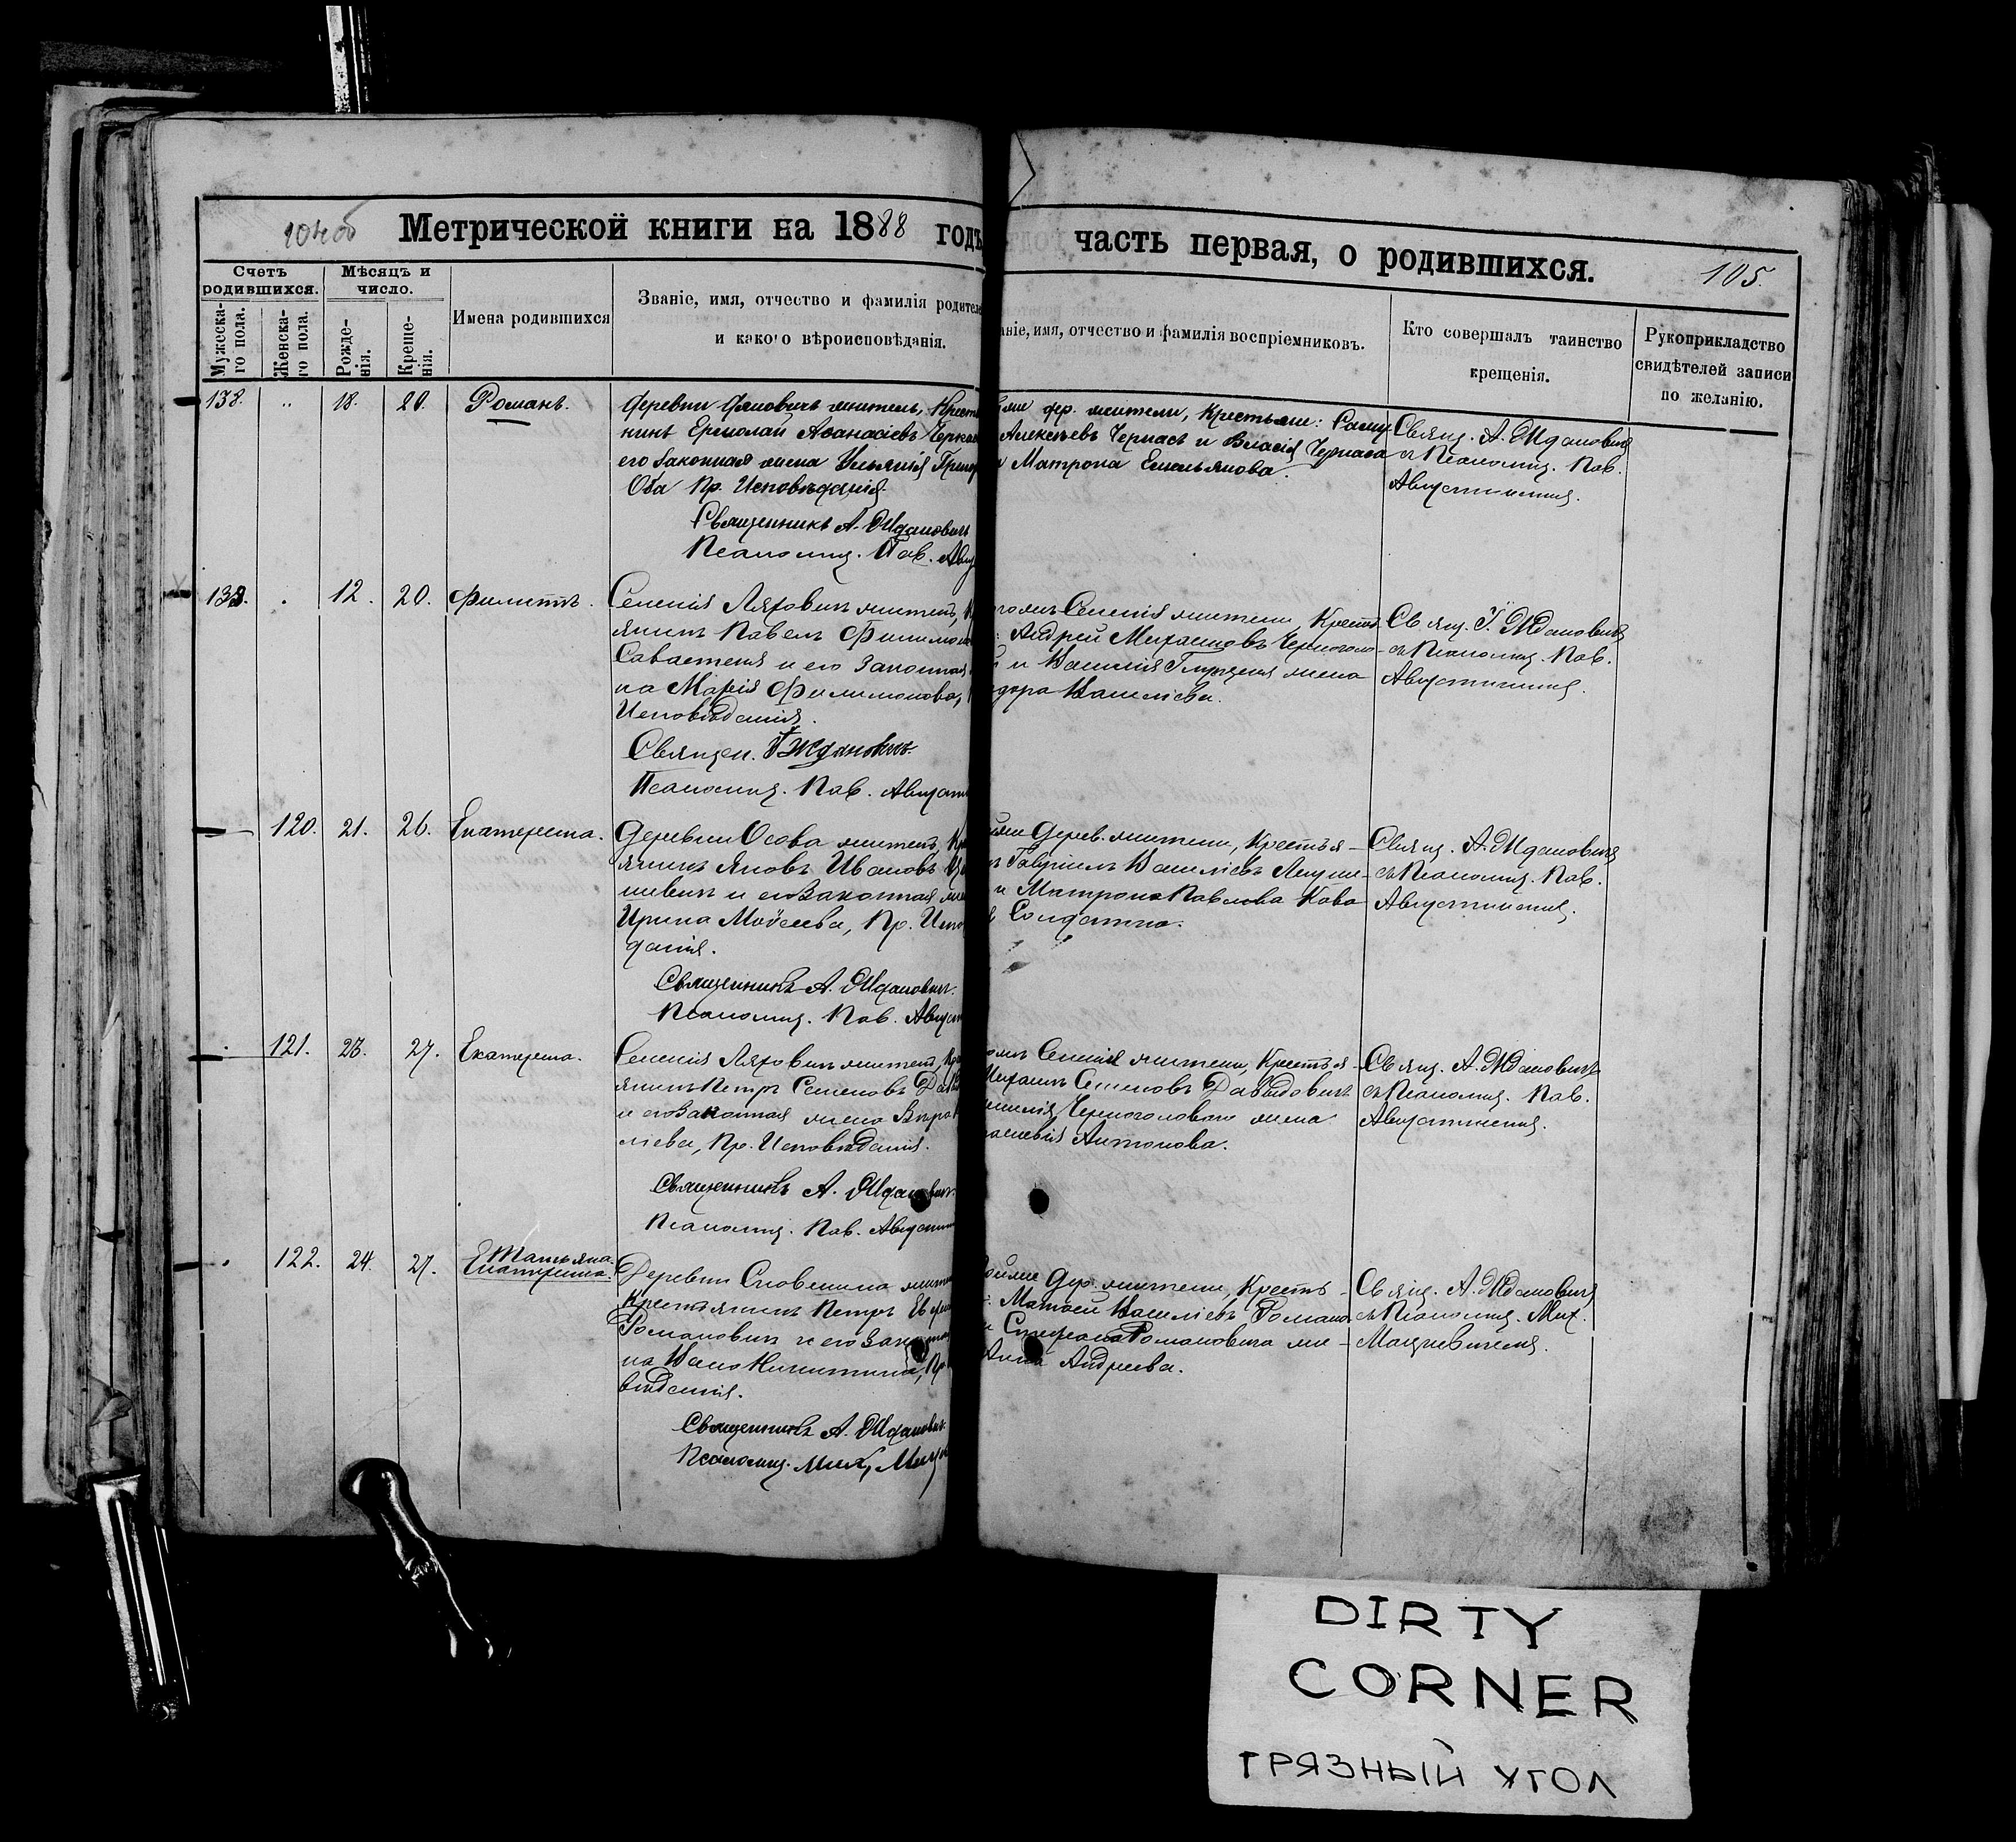 104об
Метрической книги на 1888 годъ
часть первая, о родившихся.
105.
Счетъ родившихся.
Мѣсяцъ и число.
Мужеска-го пола.
Женска-го пола.
Рожде-нія.
Креще-нія.
Имена родившихся
Званіе, имя, отчество и фамилія родителе
и какого вѣроисповѣданія.
аніе, имя, отчество и фамилія воспріемниковъ.
Кто совершалъ таинство
крещенія.
Рукоприкладство
свидѣтелей записи
по желанію.
138. 18. 20. Романъ.
деревни житель, Кресть
нинъ Ермолай Аѳанасіевъ
его законная жена Ульянія Григор
Оба Пр. Исповѣданія.
Священникъ А. Ждановичъ
Псаломщ. Пав. Авгус
дер. жители, Крестьяне:
Алексѣевъ Чернасъ и Власія Чернаса
Матрона Емельянова.
Свящ. А. Ждановичъ
съ Псаломщ. Пав.
Августиномъ.
139. 12. 20. Филиппъ.
Селенія Ляховичъ житель, К
янинъ Павелъ Филимоно
Саватеня и его Законная
на Марія Филимонова,
Исповѣданія.
Священ. І. Ждановичъ.
Псаломщ. Пав. Августи
Селенія жители, Кресть
Андрей Михаиловъ Черноголо-
и Василія жена
дора Васильева.
Свящ. І. Ждановичъ
съ Псаломщ. Пав.
Августиномъ.
120. 21. 26. Екатерина.
Деревни Осова житель, Кре
янинъ Яковъ Ивановъ
шевичъ и его Законная же
Ирина Моисеева, Пр. Испо
данія.
Священникъ А. Ждановичъ.
Псаломщ. Пав. Август
Дерев. жители, Крестья-
Гавріилъ Васильевъ
и Матрона Павлова Кова
Солдатка.
Свящ. А. Ждановичъ
съ Псаломщ. Пав.
Августиномъ.
121. 23. 27. Екатерина.
Селенія Ляховичъ житель, Кре
янинъ Петръ Семеновъ Дав
и его Законная жена Вѣра
ліева, Пр. Исповѣданія.
Священникъ А. Ждановичъ.
Псаломщ. Пав. Августин
Селенія жители, Крестья-
Михаилъ Семеновъ Давидовичъ
Черноголоваго жена
Антонова.
Свящ. А. Ждановичъ
съ Псаломщ. Пав.
Августиномъ.
122. 24. 27. Татьяна.
Екатерина.
Деревни жите
Крестьянинъ Петръ
Романовичъ и его Законная
на Никитина, Пр
вѣданія.
Священникъ А. Ждановичъ.
Псаломщ. Мих.
дер. жители, Кресть-
Матѳей Васильевъ Романо
Стефана Романовича же-
Анна Андреева.
Свящ. А. Ждановичъ
съ Псаломщ. Мих.
DIRTY
CORNER
ГРЯЗНЫЙ УГОЛ